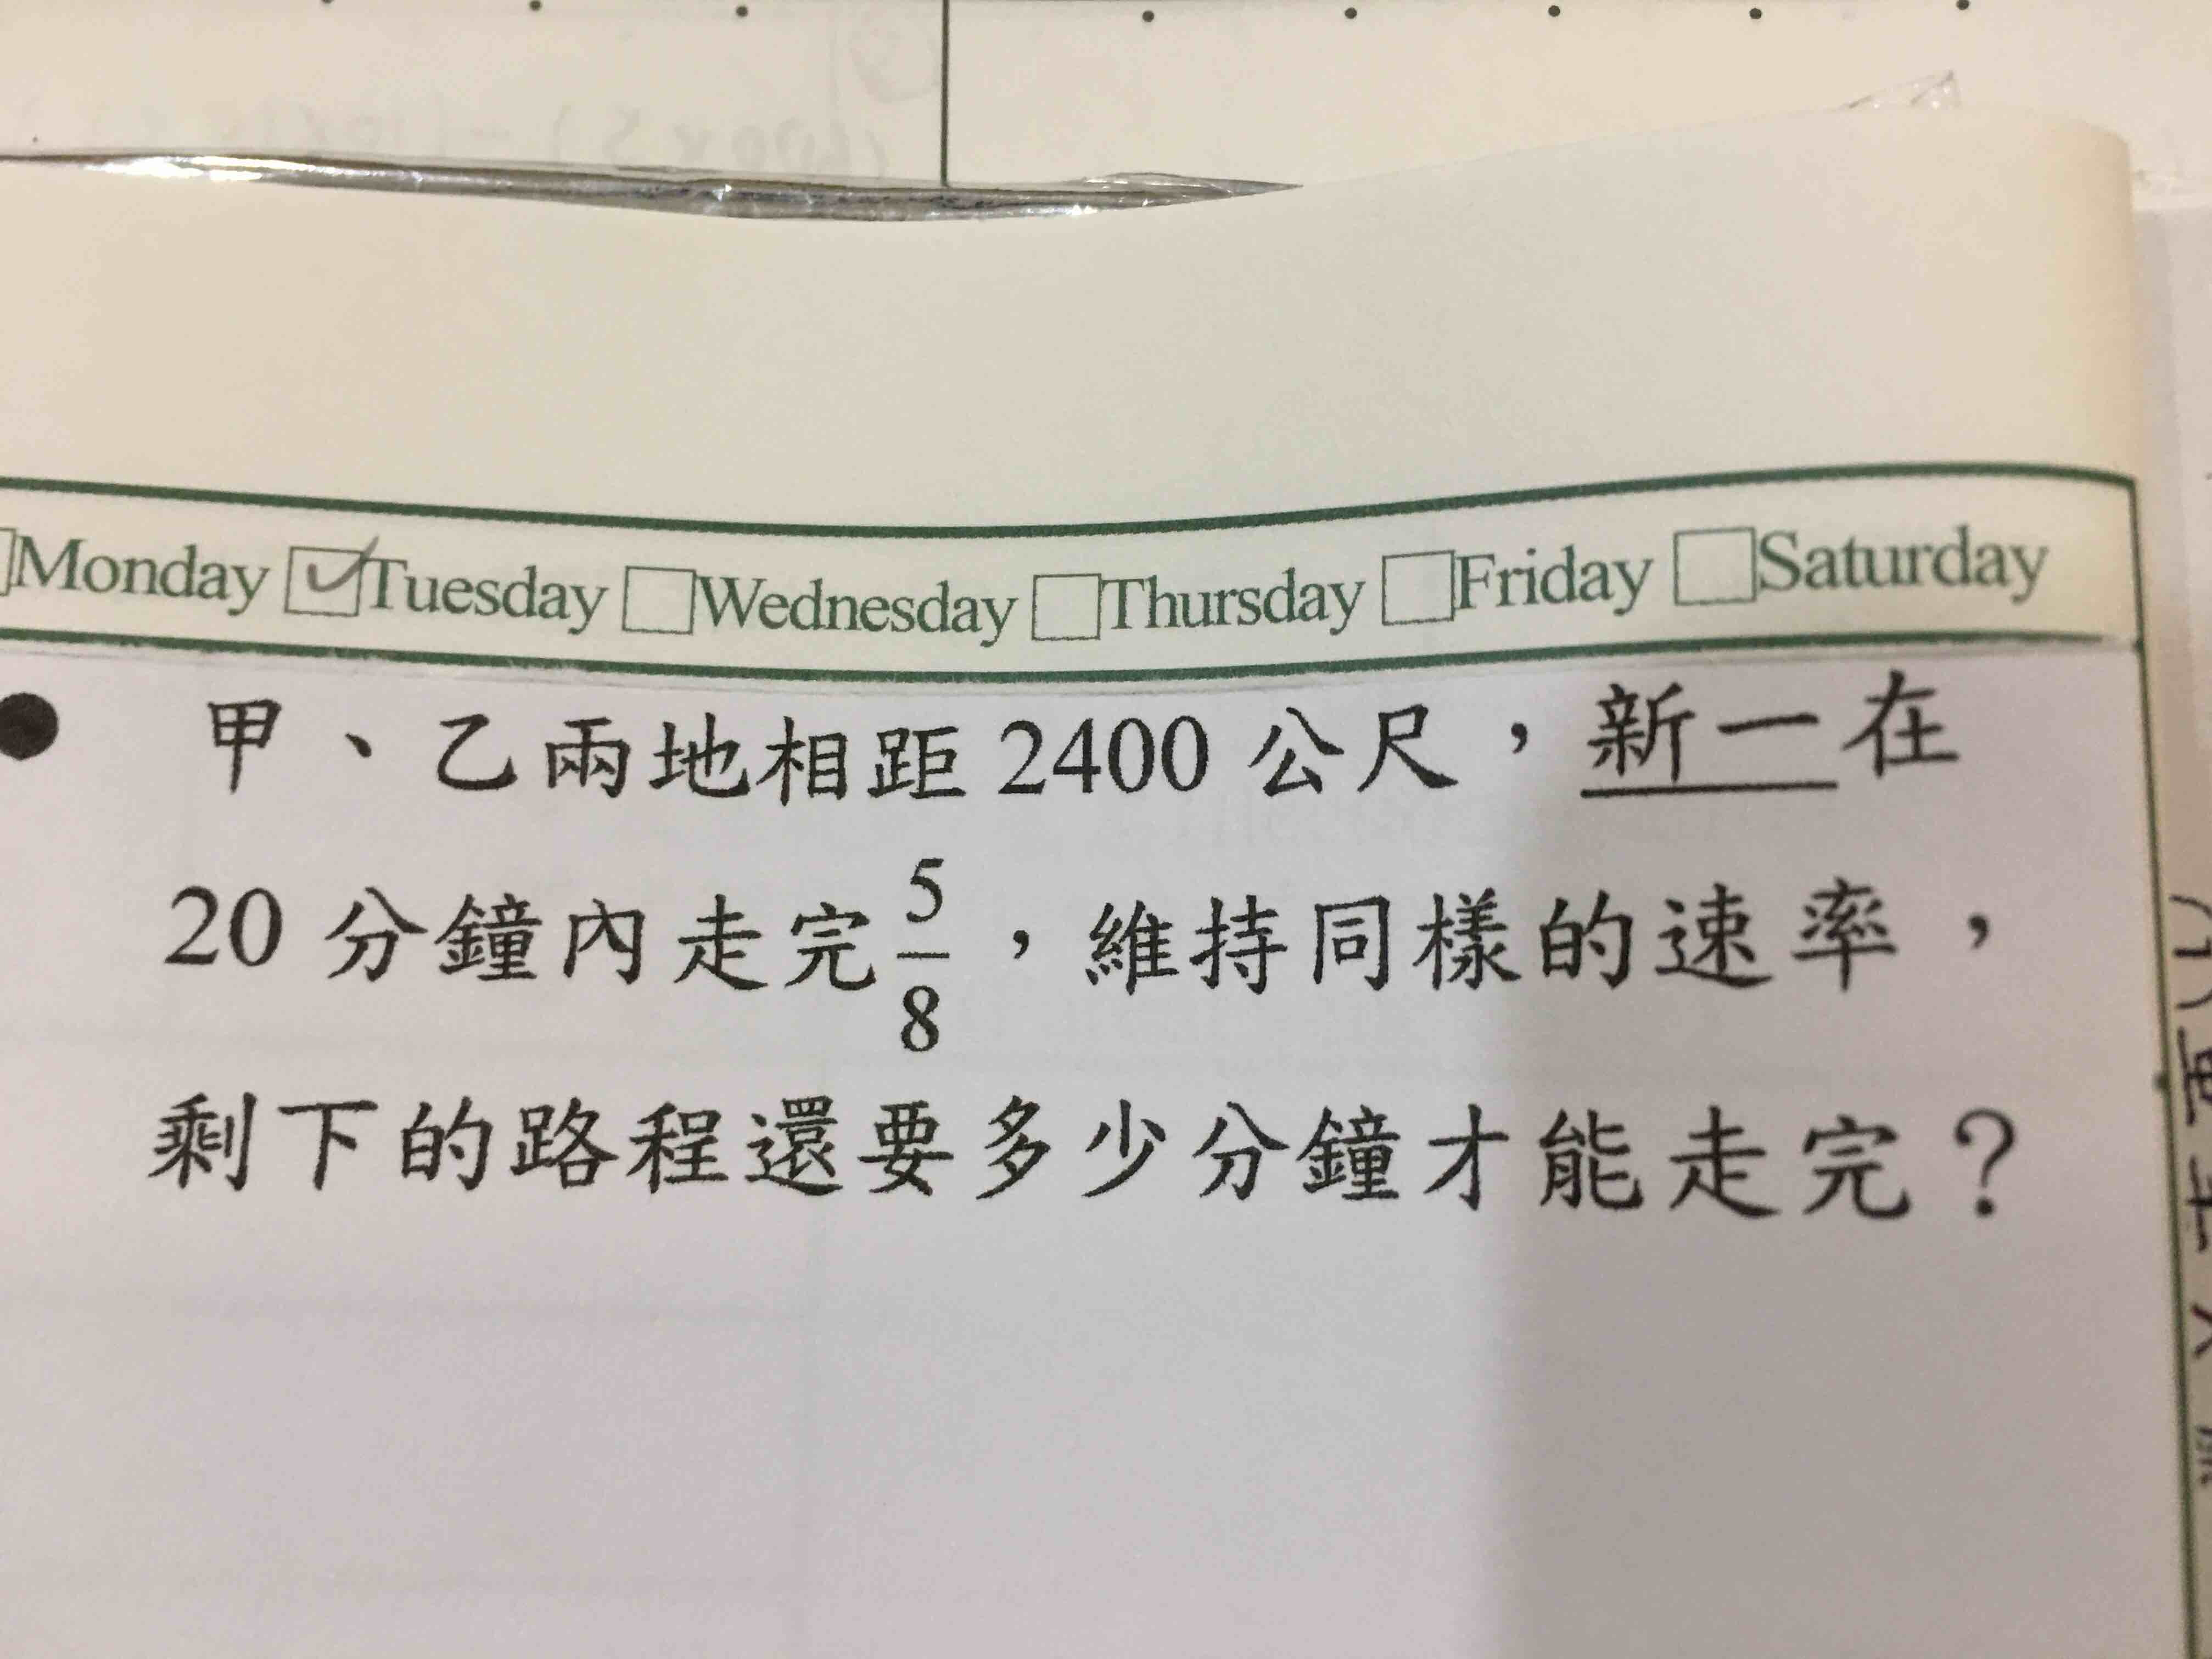 Monday Tuesday Wednesday Thursday Friday Saturday
甲、乙兩地相距 2400 公尺，新一在
20 分鐘內走完 5/8，維持同樣的速率，
剩下的路程還要多少分鐘才能走完？
(1)